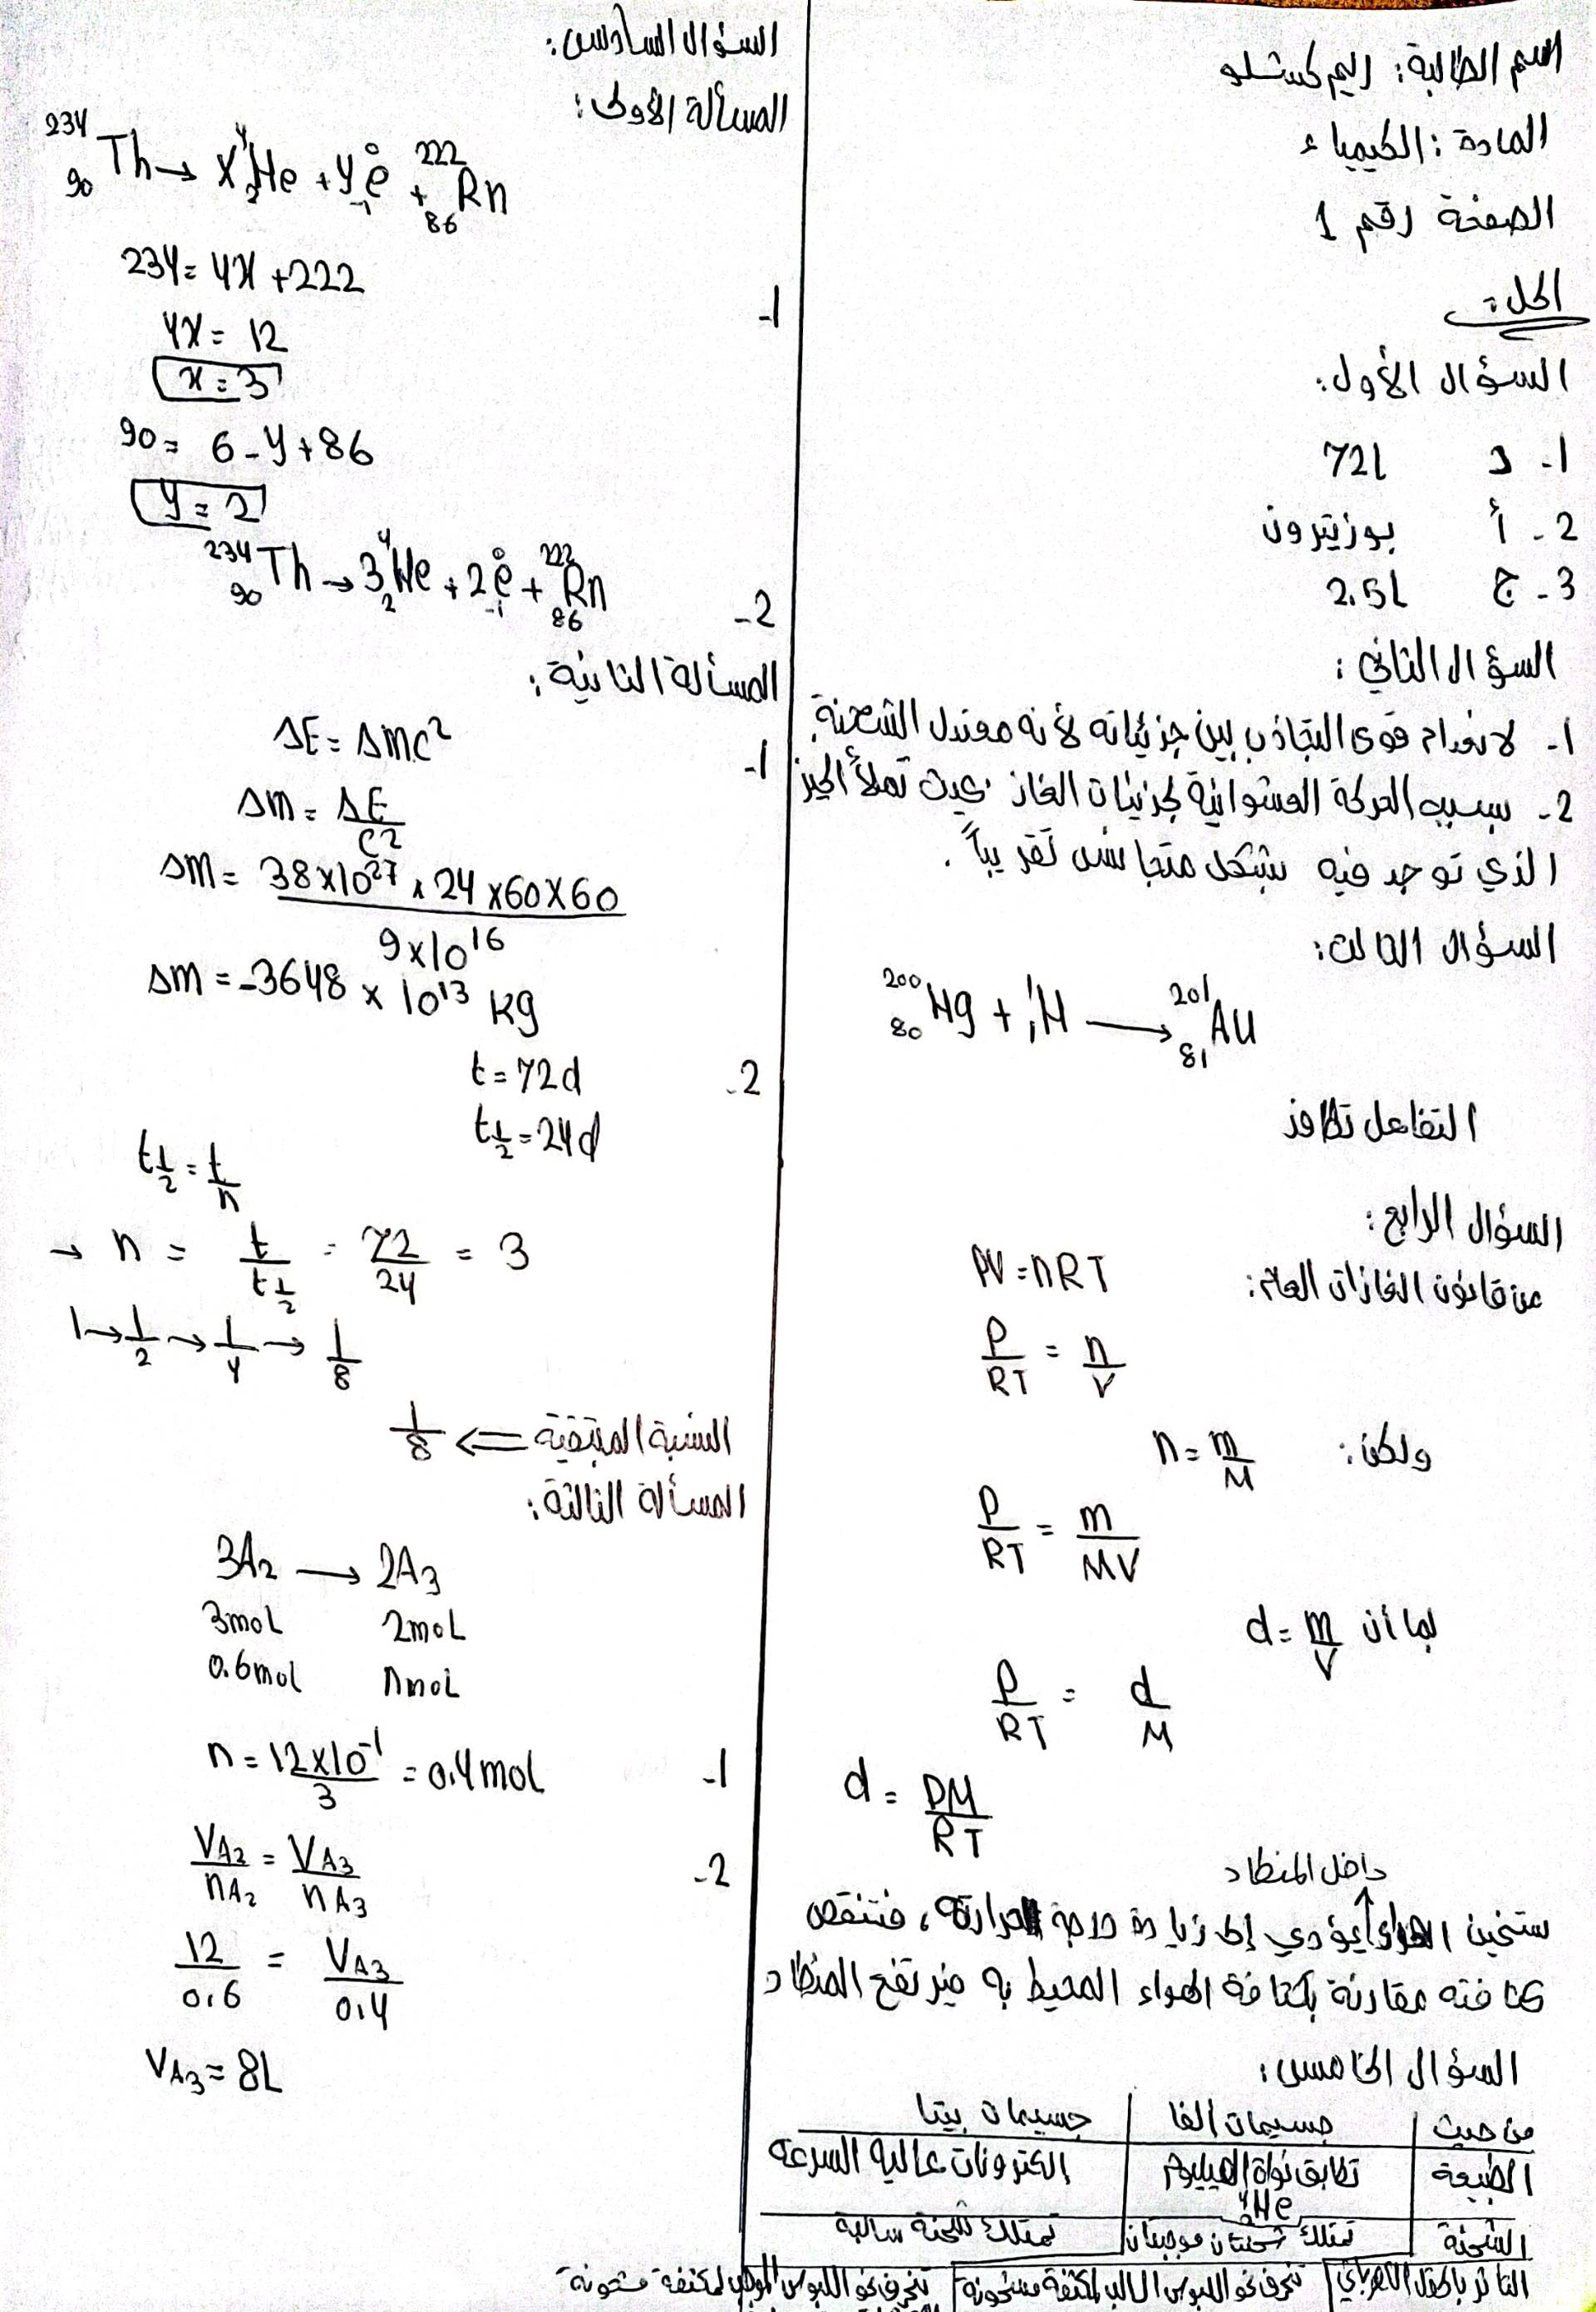 اسم الطالبة: ريم كستلو
المادة: الكيمياء
الصفحة رقم 1
الحل:
السؤال الأول:
1- د 72L
2- أ بوزيترون
3- ج 2.5L
السؤال الثاني:
1- لانعدام قوى التجاذب بين جزيئاته لأنه معتدل الشحنة.
2- بسبب الحركة العشوائية لجزيئات الغاز بحيث تملأ الحيز
الذي توجد فيه بشكل متجانس تقريباً.
السؤال الثالث:
²⁰⁰₈₀Hg + ¹₁H → ²⁰¹₈₁Au
التفاعل تطافر
السؤال الرابع:
من قانون الغازات العام: PV = nRT
P/RT = n/V
ولكن: n = m/M
P/RT = m/MV
بما أن d = m/V
P/RT = d/M
d = PM/RT
داخل المنطاد
سخين الهواء يؤدي إلى زيادة درجة الحرارة، فتنقص
كثافته مقارنة بكثافة الهواء المحيط به فيرتفع المنطاد
السؤال الخامس:
من حيث | جسيمات ألفا | جسيمات بيتا
الطبيعة | تطابق نواة الهيليوم ⁴₂He | الكترونات عالية السرعة
الشحنة | تمتلك شحنتان موجبتان | تمتلك شحنة سالبة
التأثر بالحقل الكهربائي | تنحرف نحو اللبوس السالب لمكثفة مشحونة | تنحرف نحو اللبوس الموجب لمكثفة مشحونة
السؤال السادس:
المسألة الأولى:
²³⁴₉₀Th → x⁴₂He + y⁰₋₁e + ²²²₈₆Rn
1- 234 = 4x + 222
4x = 12
x = 3
90 = 6 - y + 86
y = 2
2- ²³⁴₉₀Th → 3⁴₂He + 2⁰₋₁e + ²²²₈₆Rn
المسألة الثانية:
1- ΔE = Δmc²
Δm = ΔE/c²
Δm = 38×10²⁷ × 24 × 60 × 60 / 9×10¹⁶
Δm = -3648 × 10¹³ kg
2- t = 72d
t½ = 24d
t½ = t/n
→ n = t/t½ = 72/24 = 3
1 → 1/2 → 1/4 → 1/8
النسبة المتبقية ⇐ 1/8
المسألة الثالثة:
3A₂ → 2A₃
3mol 2mol
0.6mol nmol
1- n = 12×10⁻¹/3 = 0.4mol
2- VA₂/nA₂ = VA₃/nA₃
12/0.6 = VA₃/0.4
VA₃ = 8L